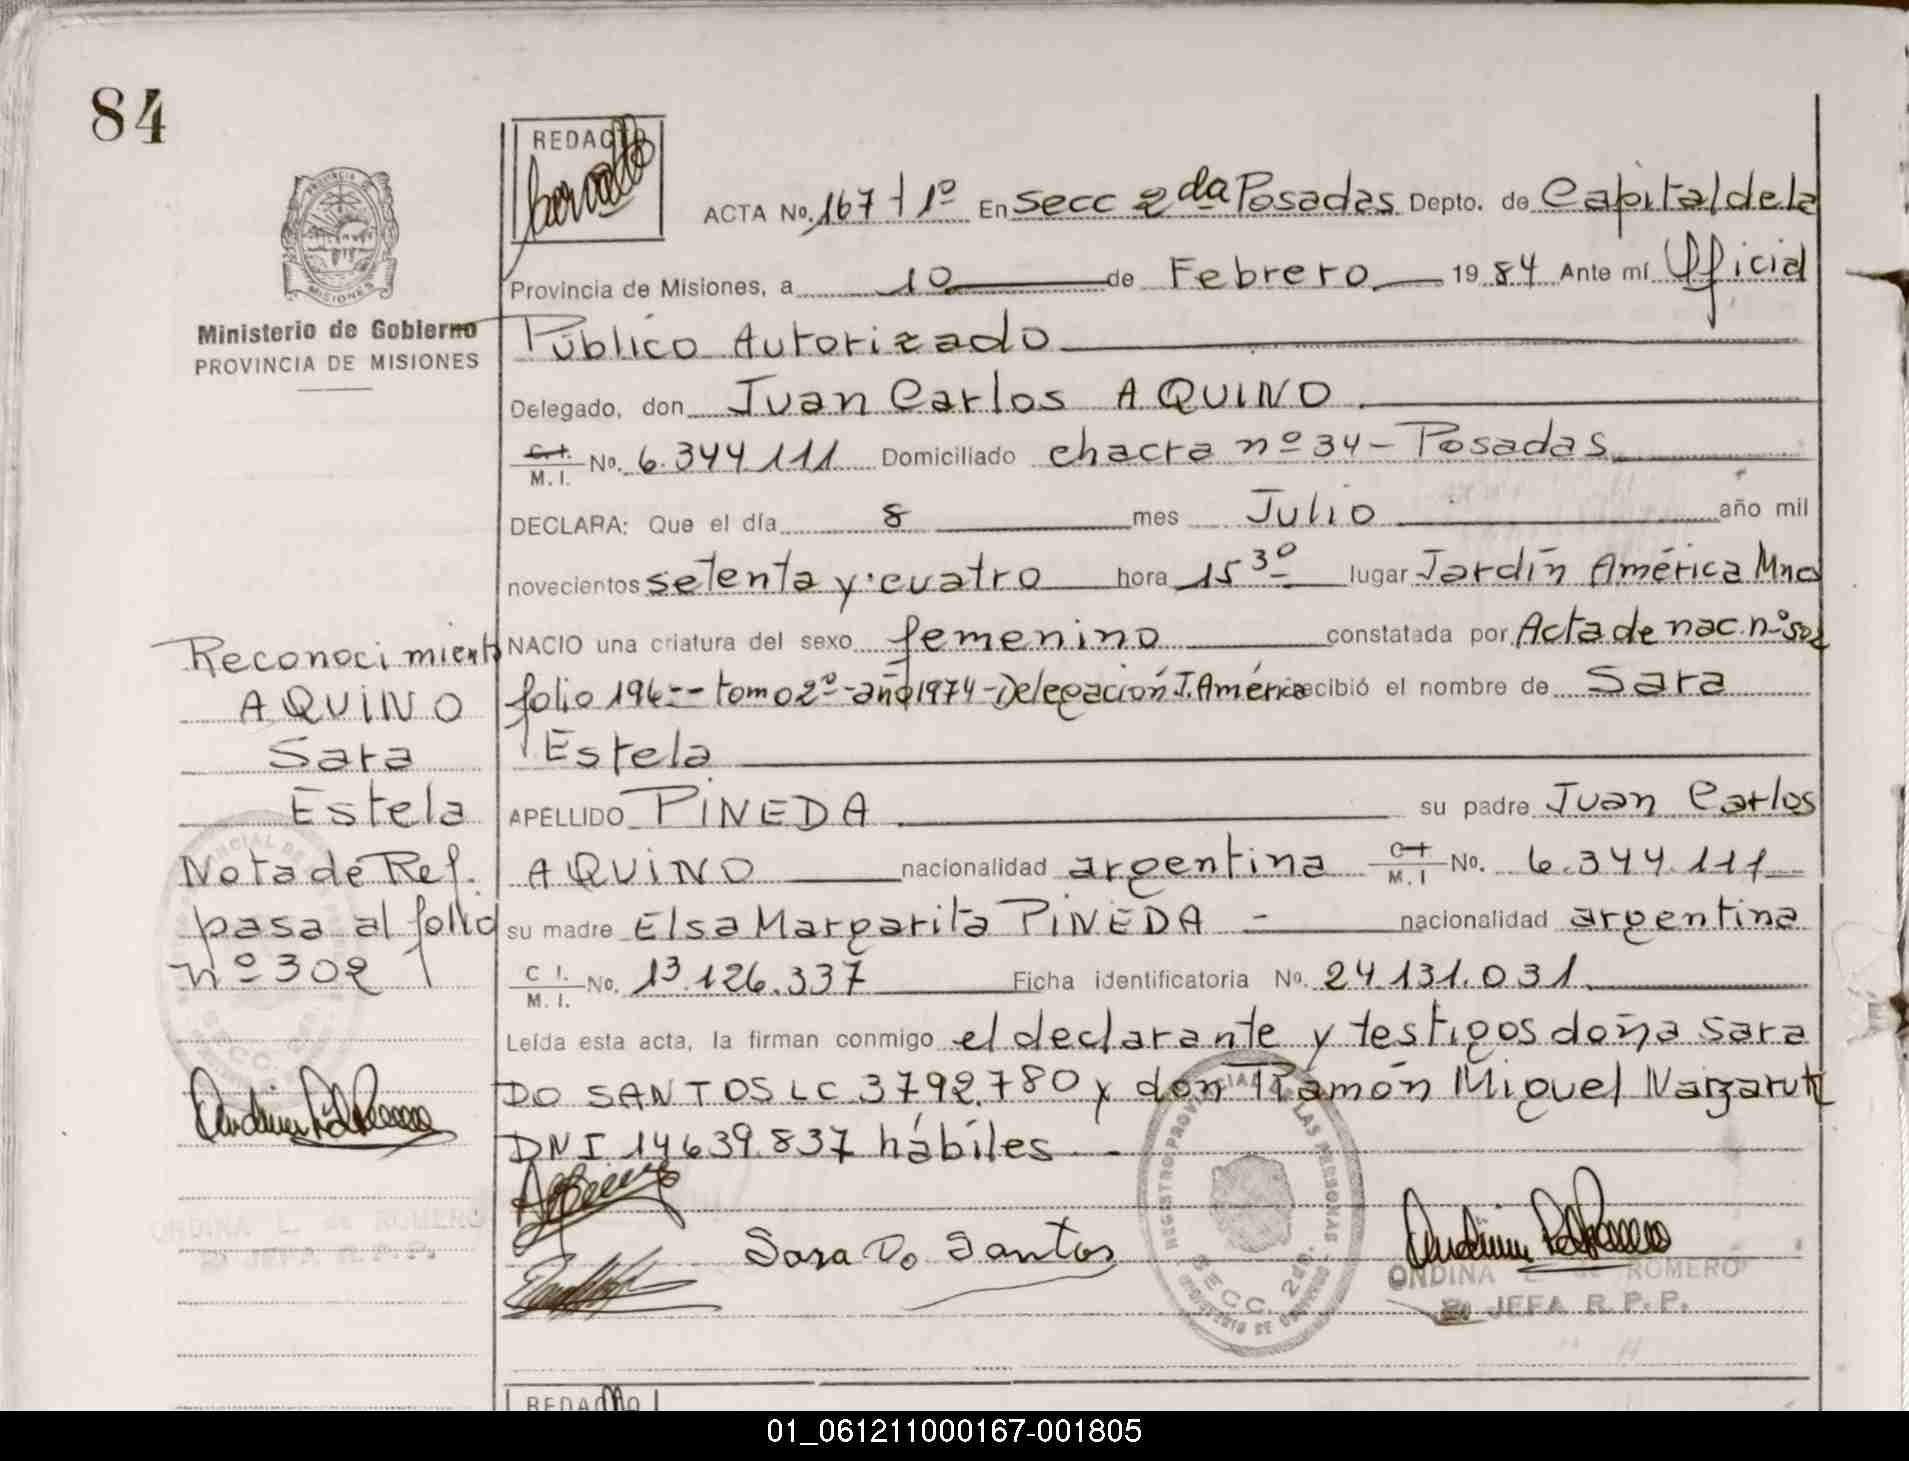 84
REDACTO
PROVINCIA
MISIONES
Ministerio de Gobierno
PROVINCIA DE MISIONES
ACTA No. 167 t 1º En Secc 2da Posadas Depto. de Capital de la
Provincia de Misiones, a 10 de Febrero 1984 Ante mí Oficial
Público Autorizado
Delegado, don Juan Carlos AQUINO
C.I. M. I. No. 6.344.111 Domiciliado chacra nº 34 - Posadas
DECLARA: Que el día 8 mes Julio año mil
novecientos setenta y cuatro hora 15 30 lugar Jardín América Mnes
NACIO una criatura del sexo femenino constatada por Acta de nac. nº 502
folio 196-- tomo 2º-año 1974-Delegación J. América recibió el nombre de Sara
Estela
APELLIDO PINEDA su padre Juan Carlos
AQUINO nacionalidad argentina C.I. M. I No. 6.344.111
su madre Elsa Margarita PINEDA - nacionalidad argentina
C I. M. I. No. 13.126.337 Ficha identificatoria No. 24.131.031
Leída esta acta, la firman conmigo el declarante y testigos doña Sara
DO SANTOS LC 3792.780 y don Ramón Miguel
DNI 14639.837 hábiles
Reconocimiento
AQUINO
Sara
Estela
Nota de Ref.
pasa al folio
nº 302
Sara Do Santos
REGISTRO PROVINCIAL DE LAS PERSONAS
SECC. 2da.
MINISTERIO DE GOBIERNO
ORDINA L. de ROMERO
JEFA R.P.P.
ONDINA L. de ROMERO
JEFA R.P.P.
REDACTO
01_061211000167-001805